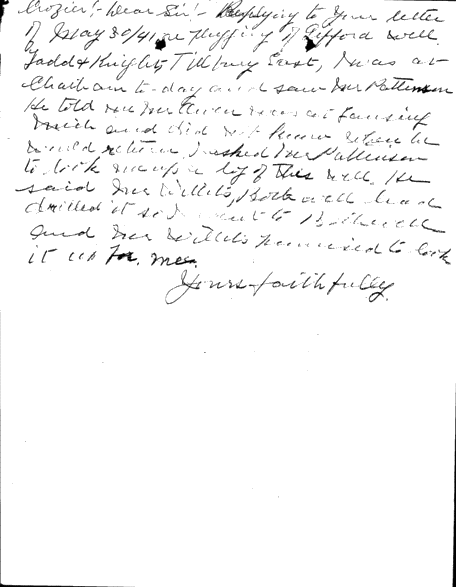 Crozier:- Dear Sir:- Replying to your letter
of May 30/41 re plugging of Gifford well
Todd & Knights Tilbury East, I was at
Chatham to-day and saw Mr Pattinson
He told me Mr was at Lansing
Mich and did not know when he
would return. I asked Mr Pattinson
to look me up a log of this well. He
said Mr Willits, Bothwell had
drilled it so I went to Bothwell
and Mr Willits promised to look
it up for me.
Yours faithfully.